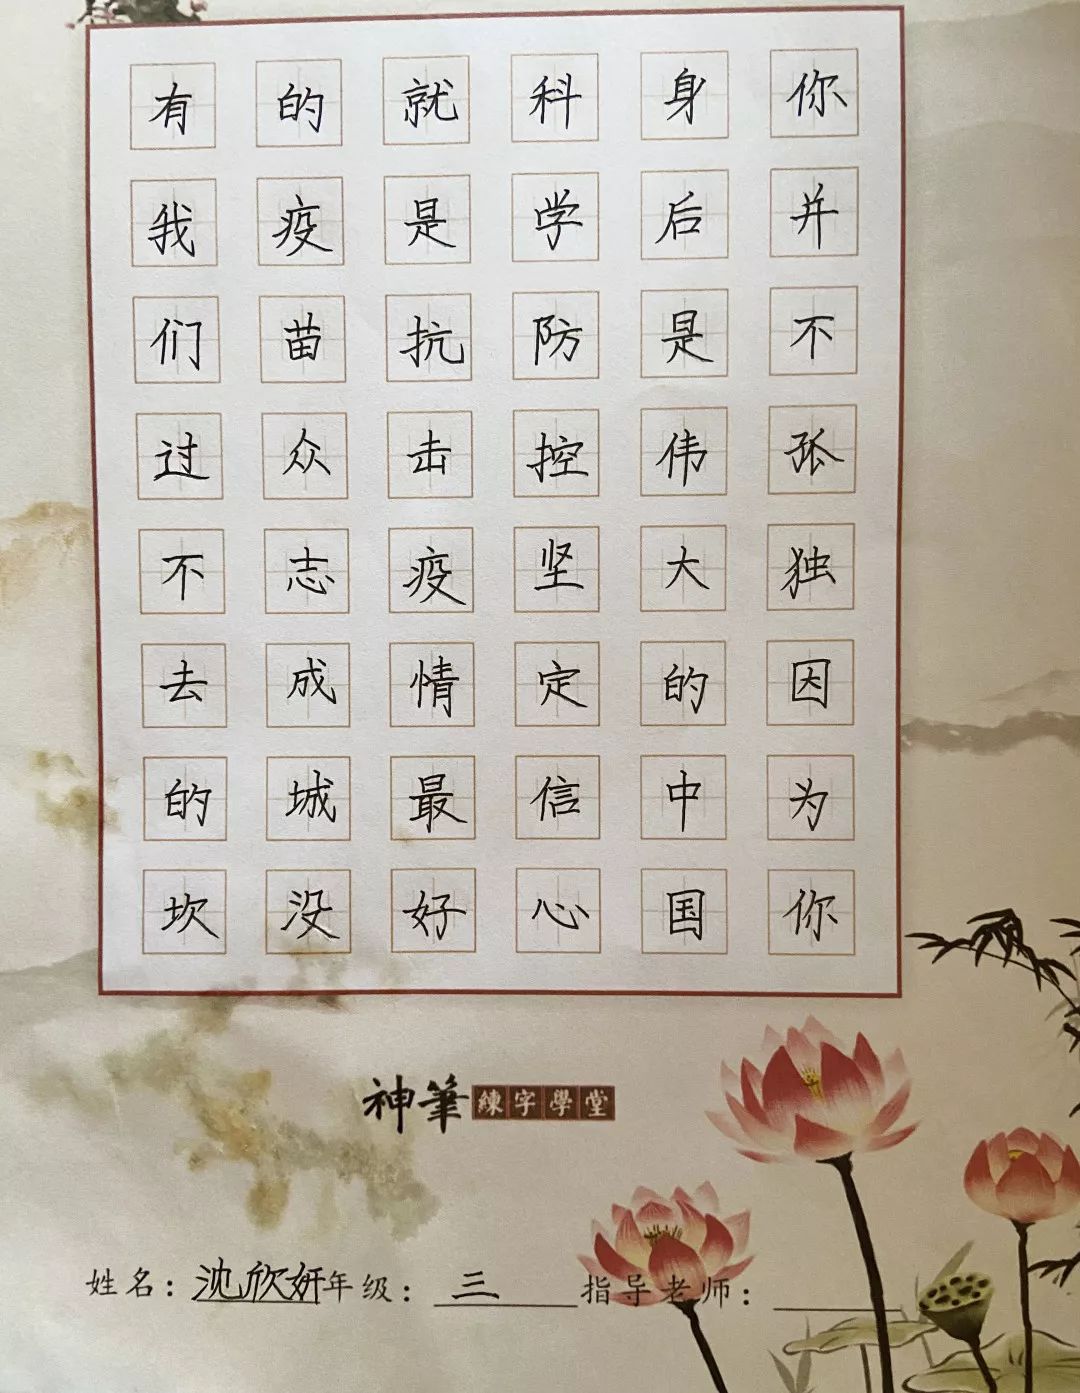 你并不孤独因为你
身后是伟大的中国
科学防控坚定信心
就是抗击疫情最好
的疫苗众志成城没
有我们过不去的坎
神筆練字學堂
姓名：沈欣妍年级：三 指导老师：